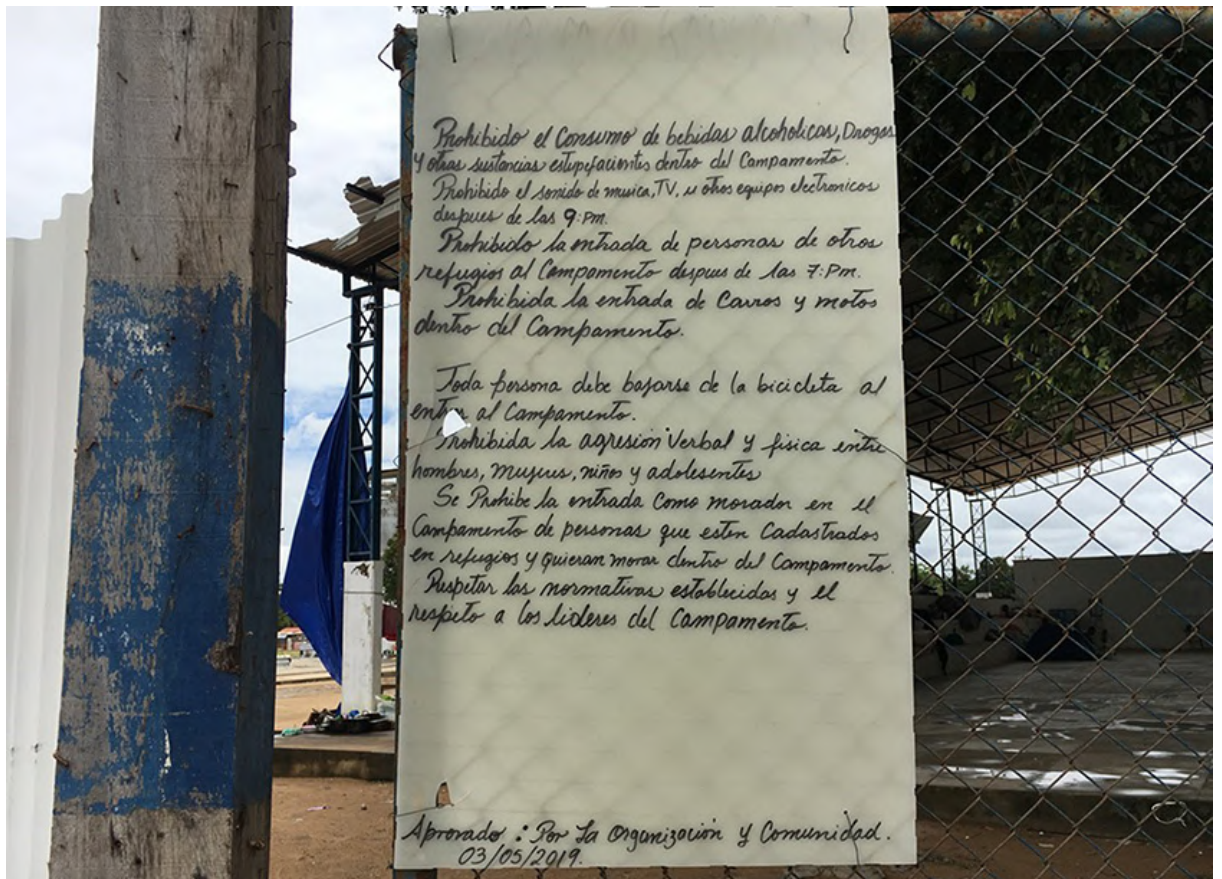 Prohibido el Consumo de bebidas alcoholicas, Drogas
Y otras sustancias estupefacientes dentro del Campamento.
Prohibido el sonido de musica, TV, u otros equipos electronicos
despues de las 9:Pm.
Prohibido la entrada de personas de otros
refugios al Campamento despues de las 7:Pm.
Prohibida la entrada de Carros y motos
dentro del Campamento.
Toda persona debe bajarse de la bicicleta al
entrar al Campamento.
Prohibida la agresion Verbal y fisica entre
hombres, Mujeres, niños y adolesentes
Se Prohibe la entrada Como morador en el
Campamento de personas que esten Cadastrados
en refugios y Quieran morar dentro del Campamento.
Respetar las normativas establecidas y el
respeto a los lideres del Campamento.
Aprovado : Por La Organización y Comunidad.
03/05/2019.